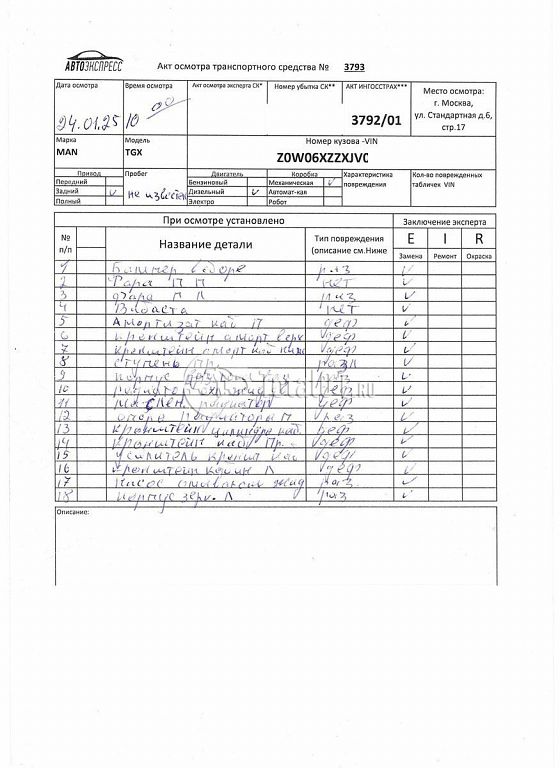 АВТОЭКСПРЕСС
Акт осмотра транспортного средства № 3793
Дата осмотра Время осмотра Акт осмотра эксперта СК* Номер убытка СК** АКТ ИНГОССТРАХ*** Место осмотра:
г. Москва,
ул. Стандартная д.6,
стр.17
24.01.25 10 00 3792/01
Марка Модель Номер кузова -VIN
MAN TGX Z0W06XZZXJVC
Привод Пробег Двигатель Коробка Характеристика повреждения Кол-во поврежденных табличек VIN
Передний Бензиновый Механическая ✓
Задний ✓ не известен Дизельный ✓ Автомат-кая
Полный Электро Робот
При осмотре установлено Заключение эксперта
№ п/п Название детали Тип повреждения (описание см.Ниже E I R
Замена Ремонт Окраска
1 Бампер в сборе раз ✓
2 Фара П П нет ✓
3 Фара П Л раз ✓
4 нет ✓
5 Амортизат каб П деф ✓
6 Кронштейн аморт верх деф ✓
7 Кронштейн аморт каб ниж деф ✓
8 Ступень пр. разл ✓
9 корпус раз ✓
10 деф ✓
11 радиатор деф ✓
12 опора радиатора П раз ✓
13 Кронштейн цилиндра каб. деф ✓
14 Кронштейн каб Пр. деф ✓
15 Усилитель кроншт каб деф ✓
16 Кронштейн Л деф ✓
17 Насос омыват жид раз ✓
18 Корпус зерк. Л раз ✓
Описание: